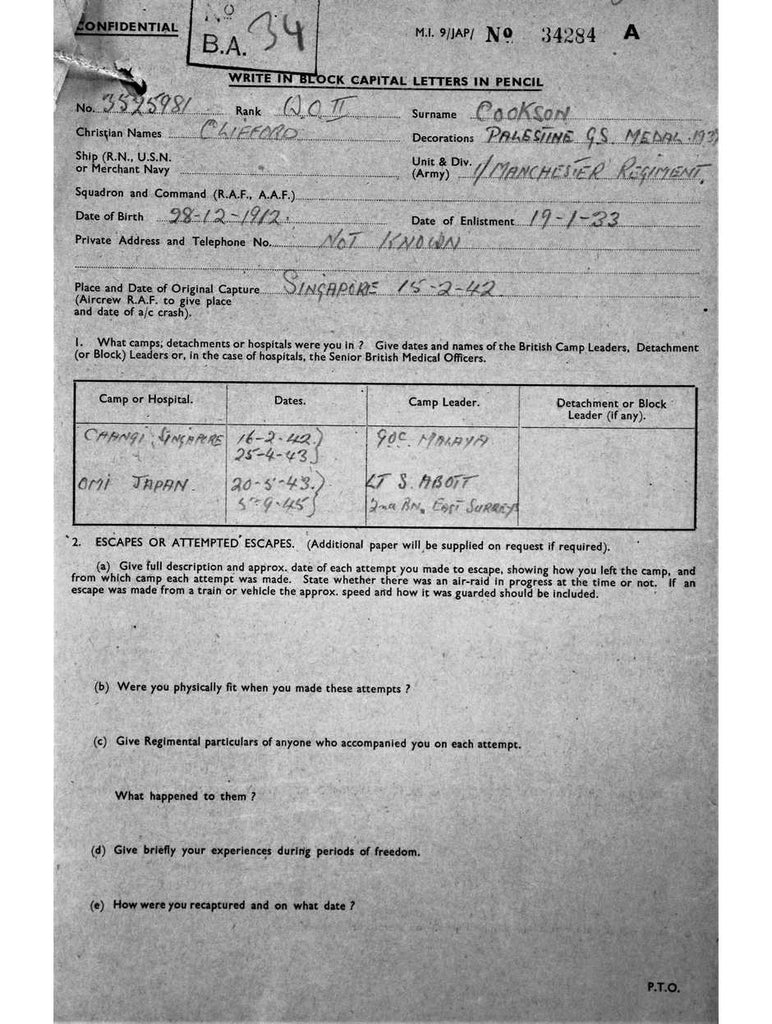 CONFIDENTIAL
No
B.A. 34
M.I. 9/JAP/ No 34284 A
WRITE IN BLOCK CAPITAL LETTERS IN PENCIL
No. 3525981 Rank W.O II Surname COOKSON
Christian Names CLIFFORD Decorations PALESTINE G.S. MEDAL. 193
Ship (R.N., U.S.N.
or Merchant Navy
Unit & Div.
(Army) 1/MANCHESTER REGIMENT.
Squadron and Command (R.A.F., A.A.F.)
Date of Birth 28-12-1912. Date of Enlistment 19-1-33
Private Address and Telephone No. NOT KNOWN
Place and Date of Original Capture SINGAPORE 15-2-42
(Aircrew R.A.F. to give place
and date of a/c crash).
1. What camps; detachments or hospitals were you in ? Give dates and names of the British Camp Leaders, Detachment
(or Block) Leaders or, in the case of hospitals, the Senior British Medical Officers.
Camp or Hospital. Dates. Camp Leader. Detachment or Block
Leader (if any).
CHANGI, SINGAPORE 16-2-42.) GOC. MALAYA
25-4-43)
OMI JAPAN. 20-5-43.) LT S. ABOTT
5-9-45) 2nd BN. EAST SURREYS
2. ESCAPES OR ATTEMPTED ESCAPES. (Additional paper will be supplied on request if required).
(a) Give full description and approx. date of each attempt you made to escape, showing how you left the camp, and
from which camp each attempt was made. State whether there was an air-raid in progress at the time or not. If an
escape was made from a train or vehicle the approx. speed and how it was guarded should be included.
(b) Were you physically fit when you made these attempts ?
(c) Give Regimental particulars of anyone who accompanied you on each attempt.
What happened to them ?
(d) Give briefly your experiences during periods of freedom.
(e) How were you recaptured and on what date ?
P.T.O.